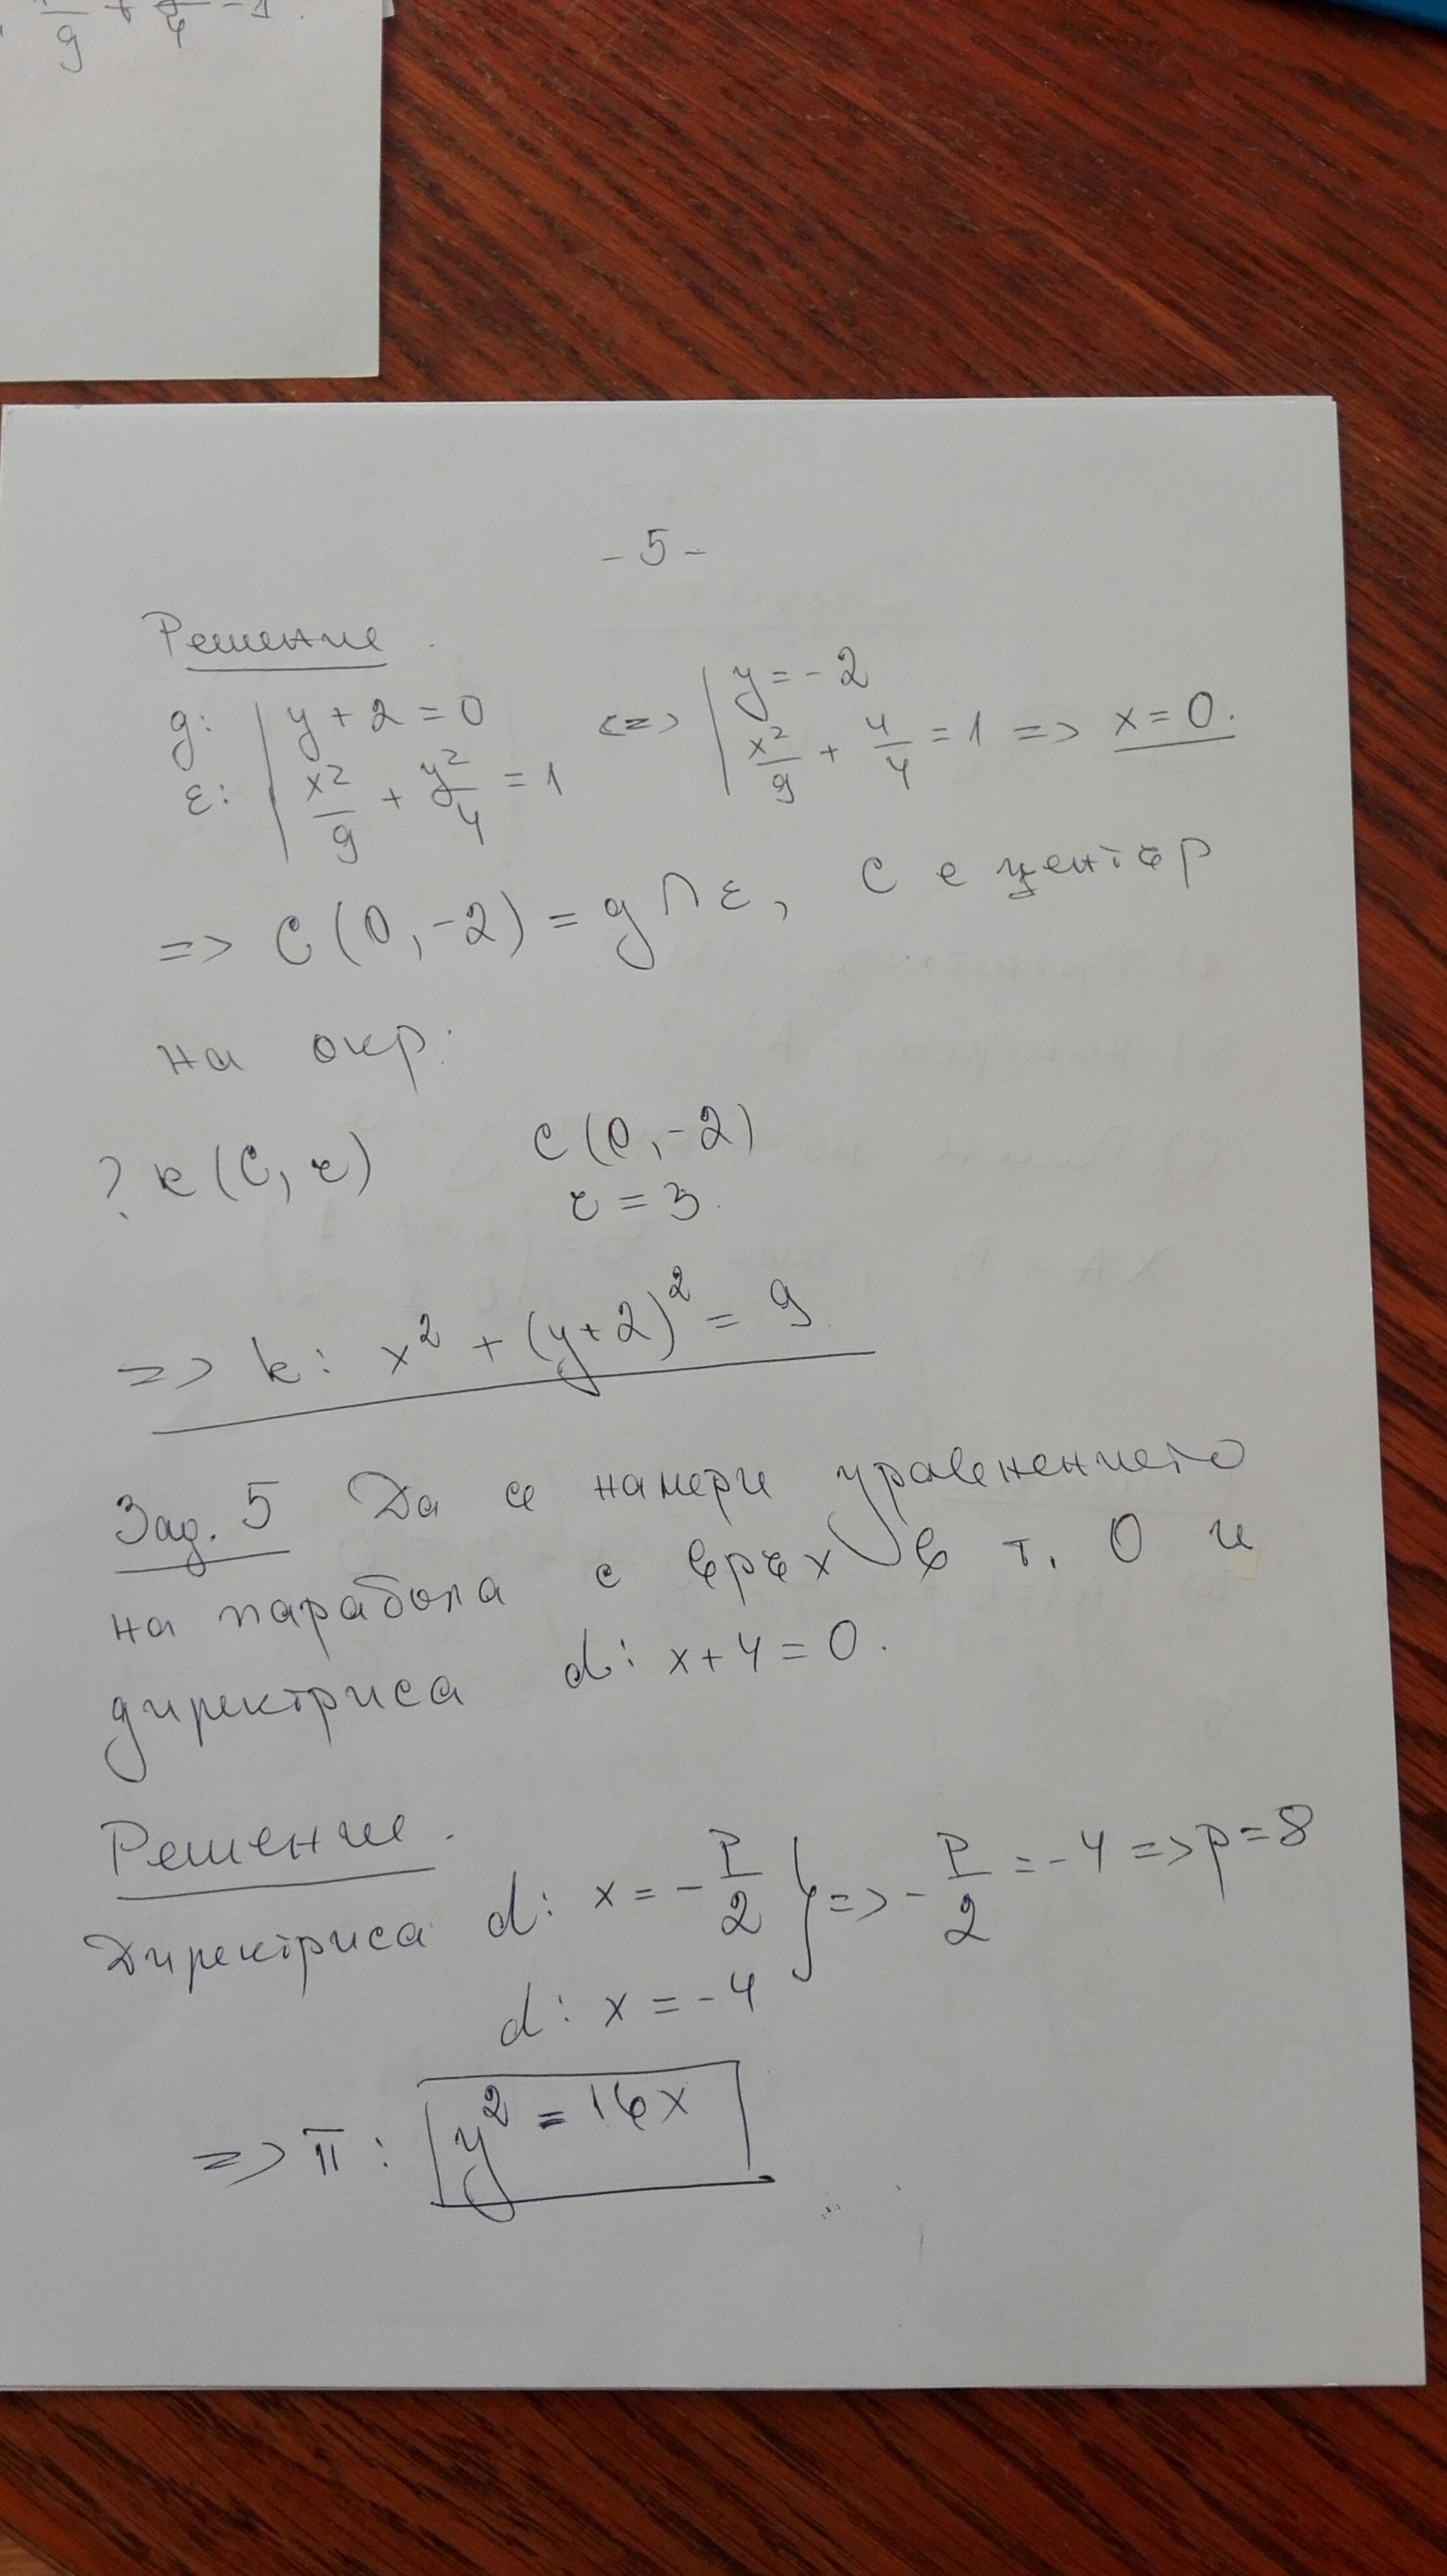 x²/9 + y²/4 = 1.
- 5 -
Решение.
g: | y + 2 = 0 <=> | y = - 2
ε: | x²/9 + y²/4 = 1 | x²/9 + 4/4 = 1 => x = 0.
=> C (0, -2) = g ∩ ε, C е център
на окр.
? k (C, r) C (0, -2)
r = 3.
=> k: x² + (y+2)² = 9
Зад. 5 Да се намери уравнението
на парабола с връх в т. O и
директриса d: x + 4 = 0.
Решение.
Директриса d: x = - p/2 } => - p/2 = - 4 => p = 8
d: x = - 4
=> π: y² = 16x